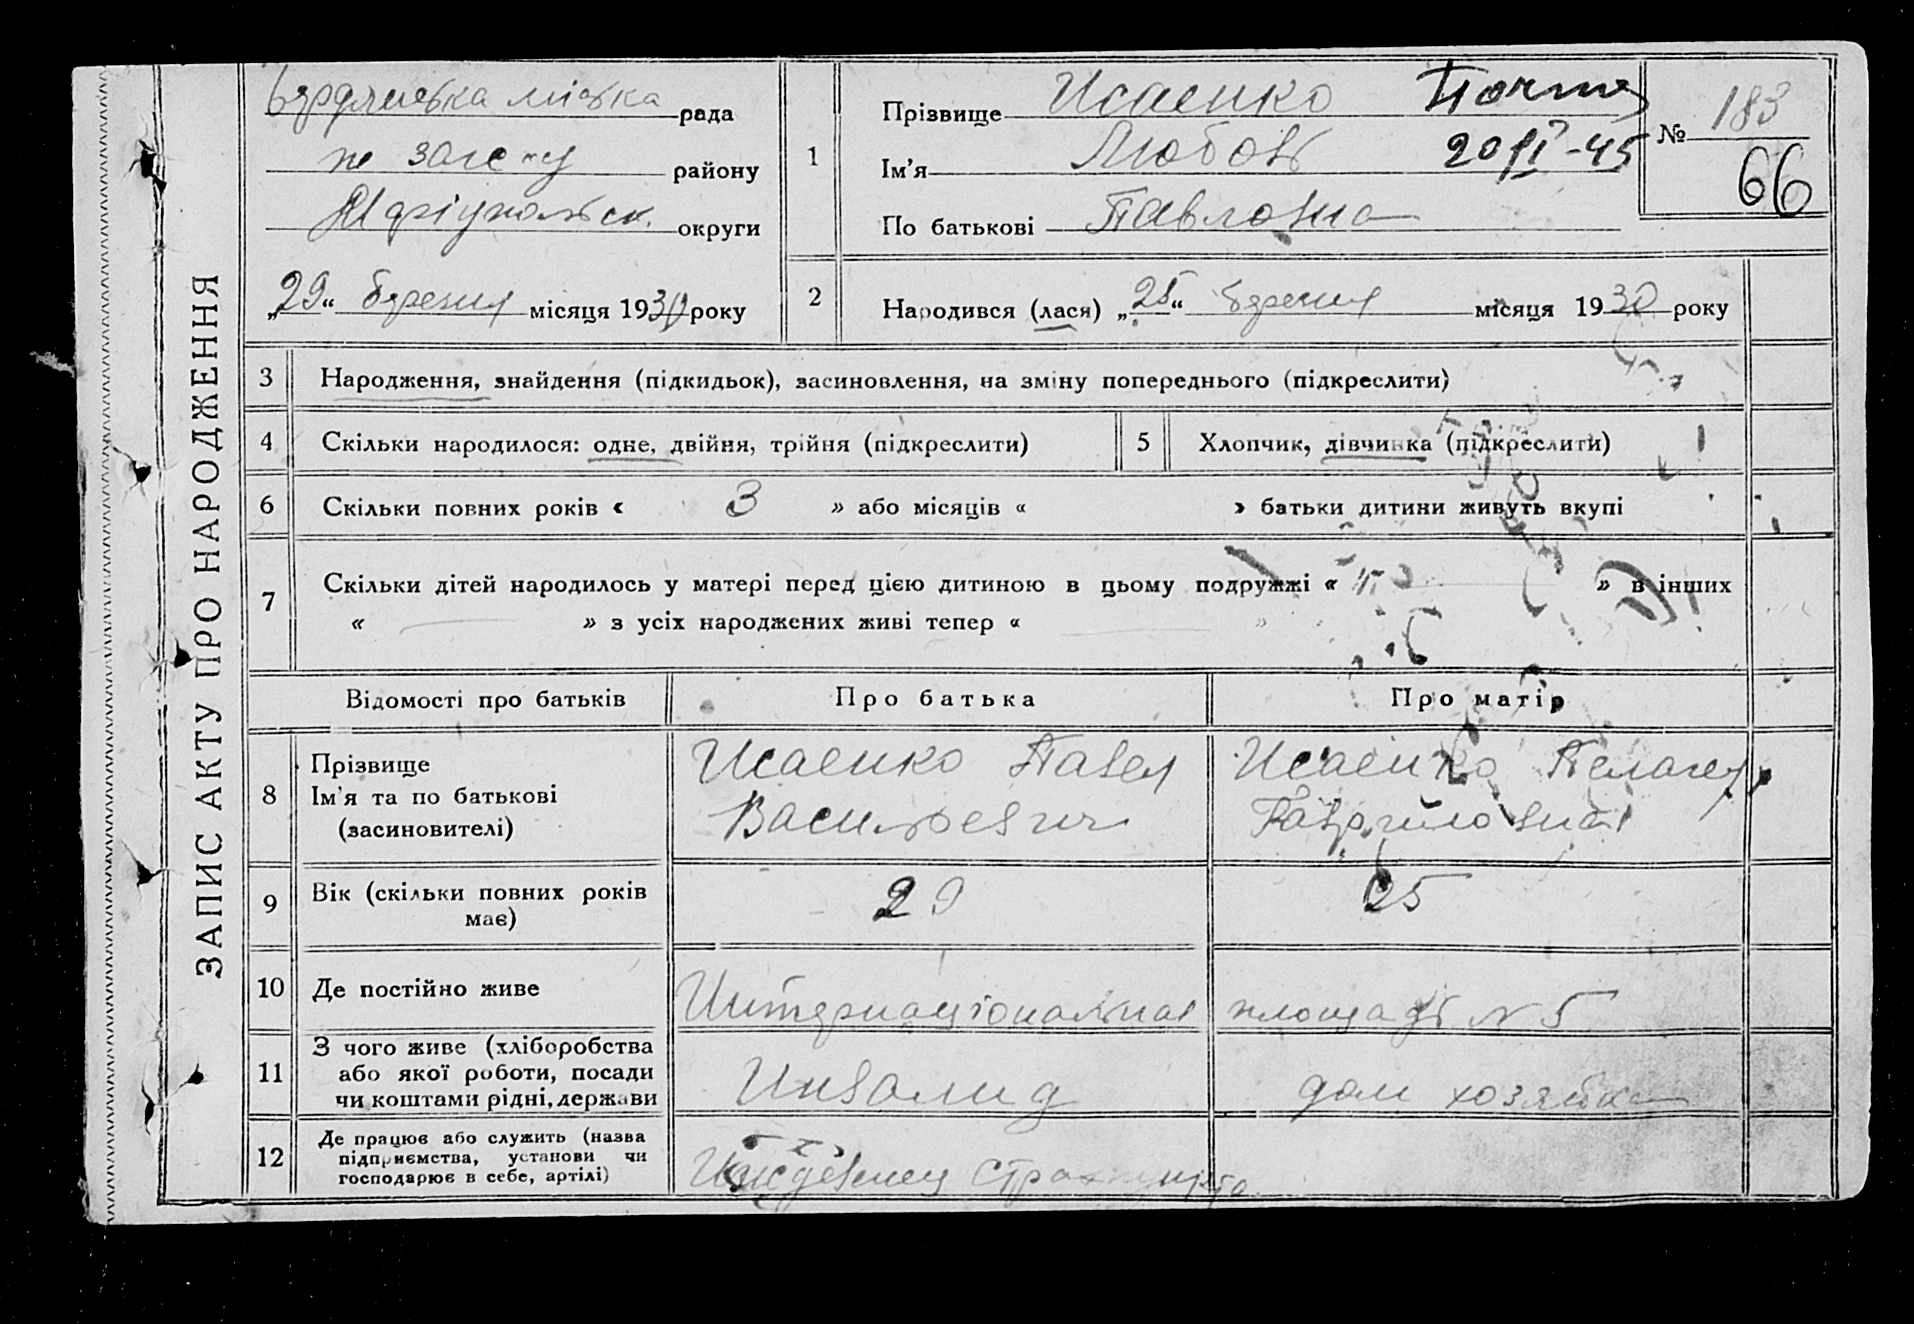 ЗАПИС АКТУ ПРО НАРОДЖЕННЯ
Бердянська міська рада
району
Маріупольськ. округи
„29“ березня місяця 1930 року
1
Прізвище Исаенко
Ім’я Любовь
По батькові Павловна
20/VI-45
№ 183
66
2
Народився (лася) „25“ березня місяця 1930 року
3 Народження, знайдення (підкидьок), засиновлення, на зміну попереднього (підкреслити)
4 Скільки народилося: одне, двійня, трійня (підкреслити)
5 Хлопчик, дівчинка (підкреслити)
6 Скільки повних років « 3 » або місяців « » батьки дитини живуть вкупі
7 Скільки дітей народилось у матері перед цією дитиною в цьому подружжі « » в інших
« » з усіх народжених живі тепер « »
Відомості про батьків Про батька Про матір
8 Прізвище
Ім’я та по батькові
(засиновителі)
Исаенко Павел
Васильевич
Исаенко Пелагея
Гавриловна
9 Вік (скільки повних років
має)
29
25
10 Де постійно живе
Интернаціональная площадь № 5
11 З чого живе (хліборобства
або якої роботи, посади
чи коштами рідні, держави
Инвалид
дом хозяйка
12 Де працює або служить (назва
підприємства, установи чи
господарює в себе, артілі)
Иждевенец